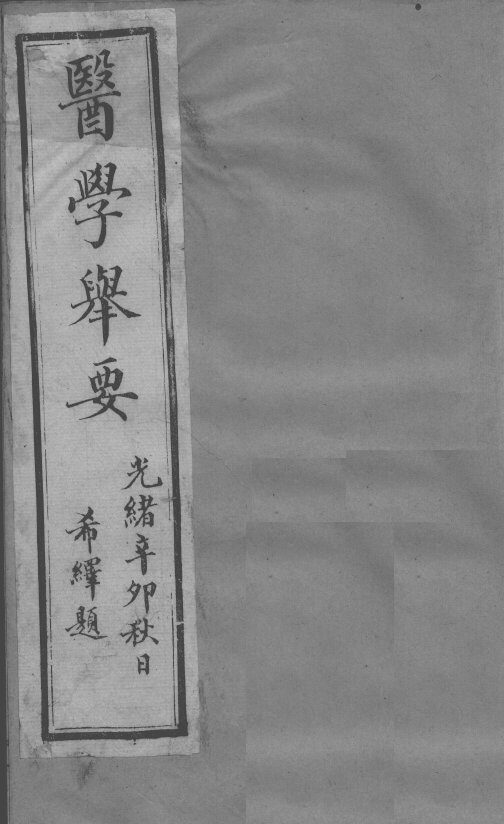 醫學舉要
光緒辛卯秋日
希繹題